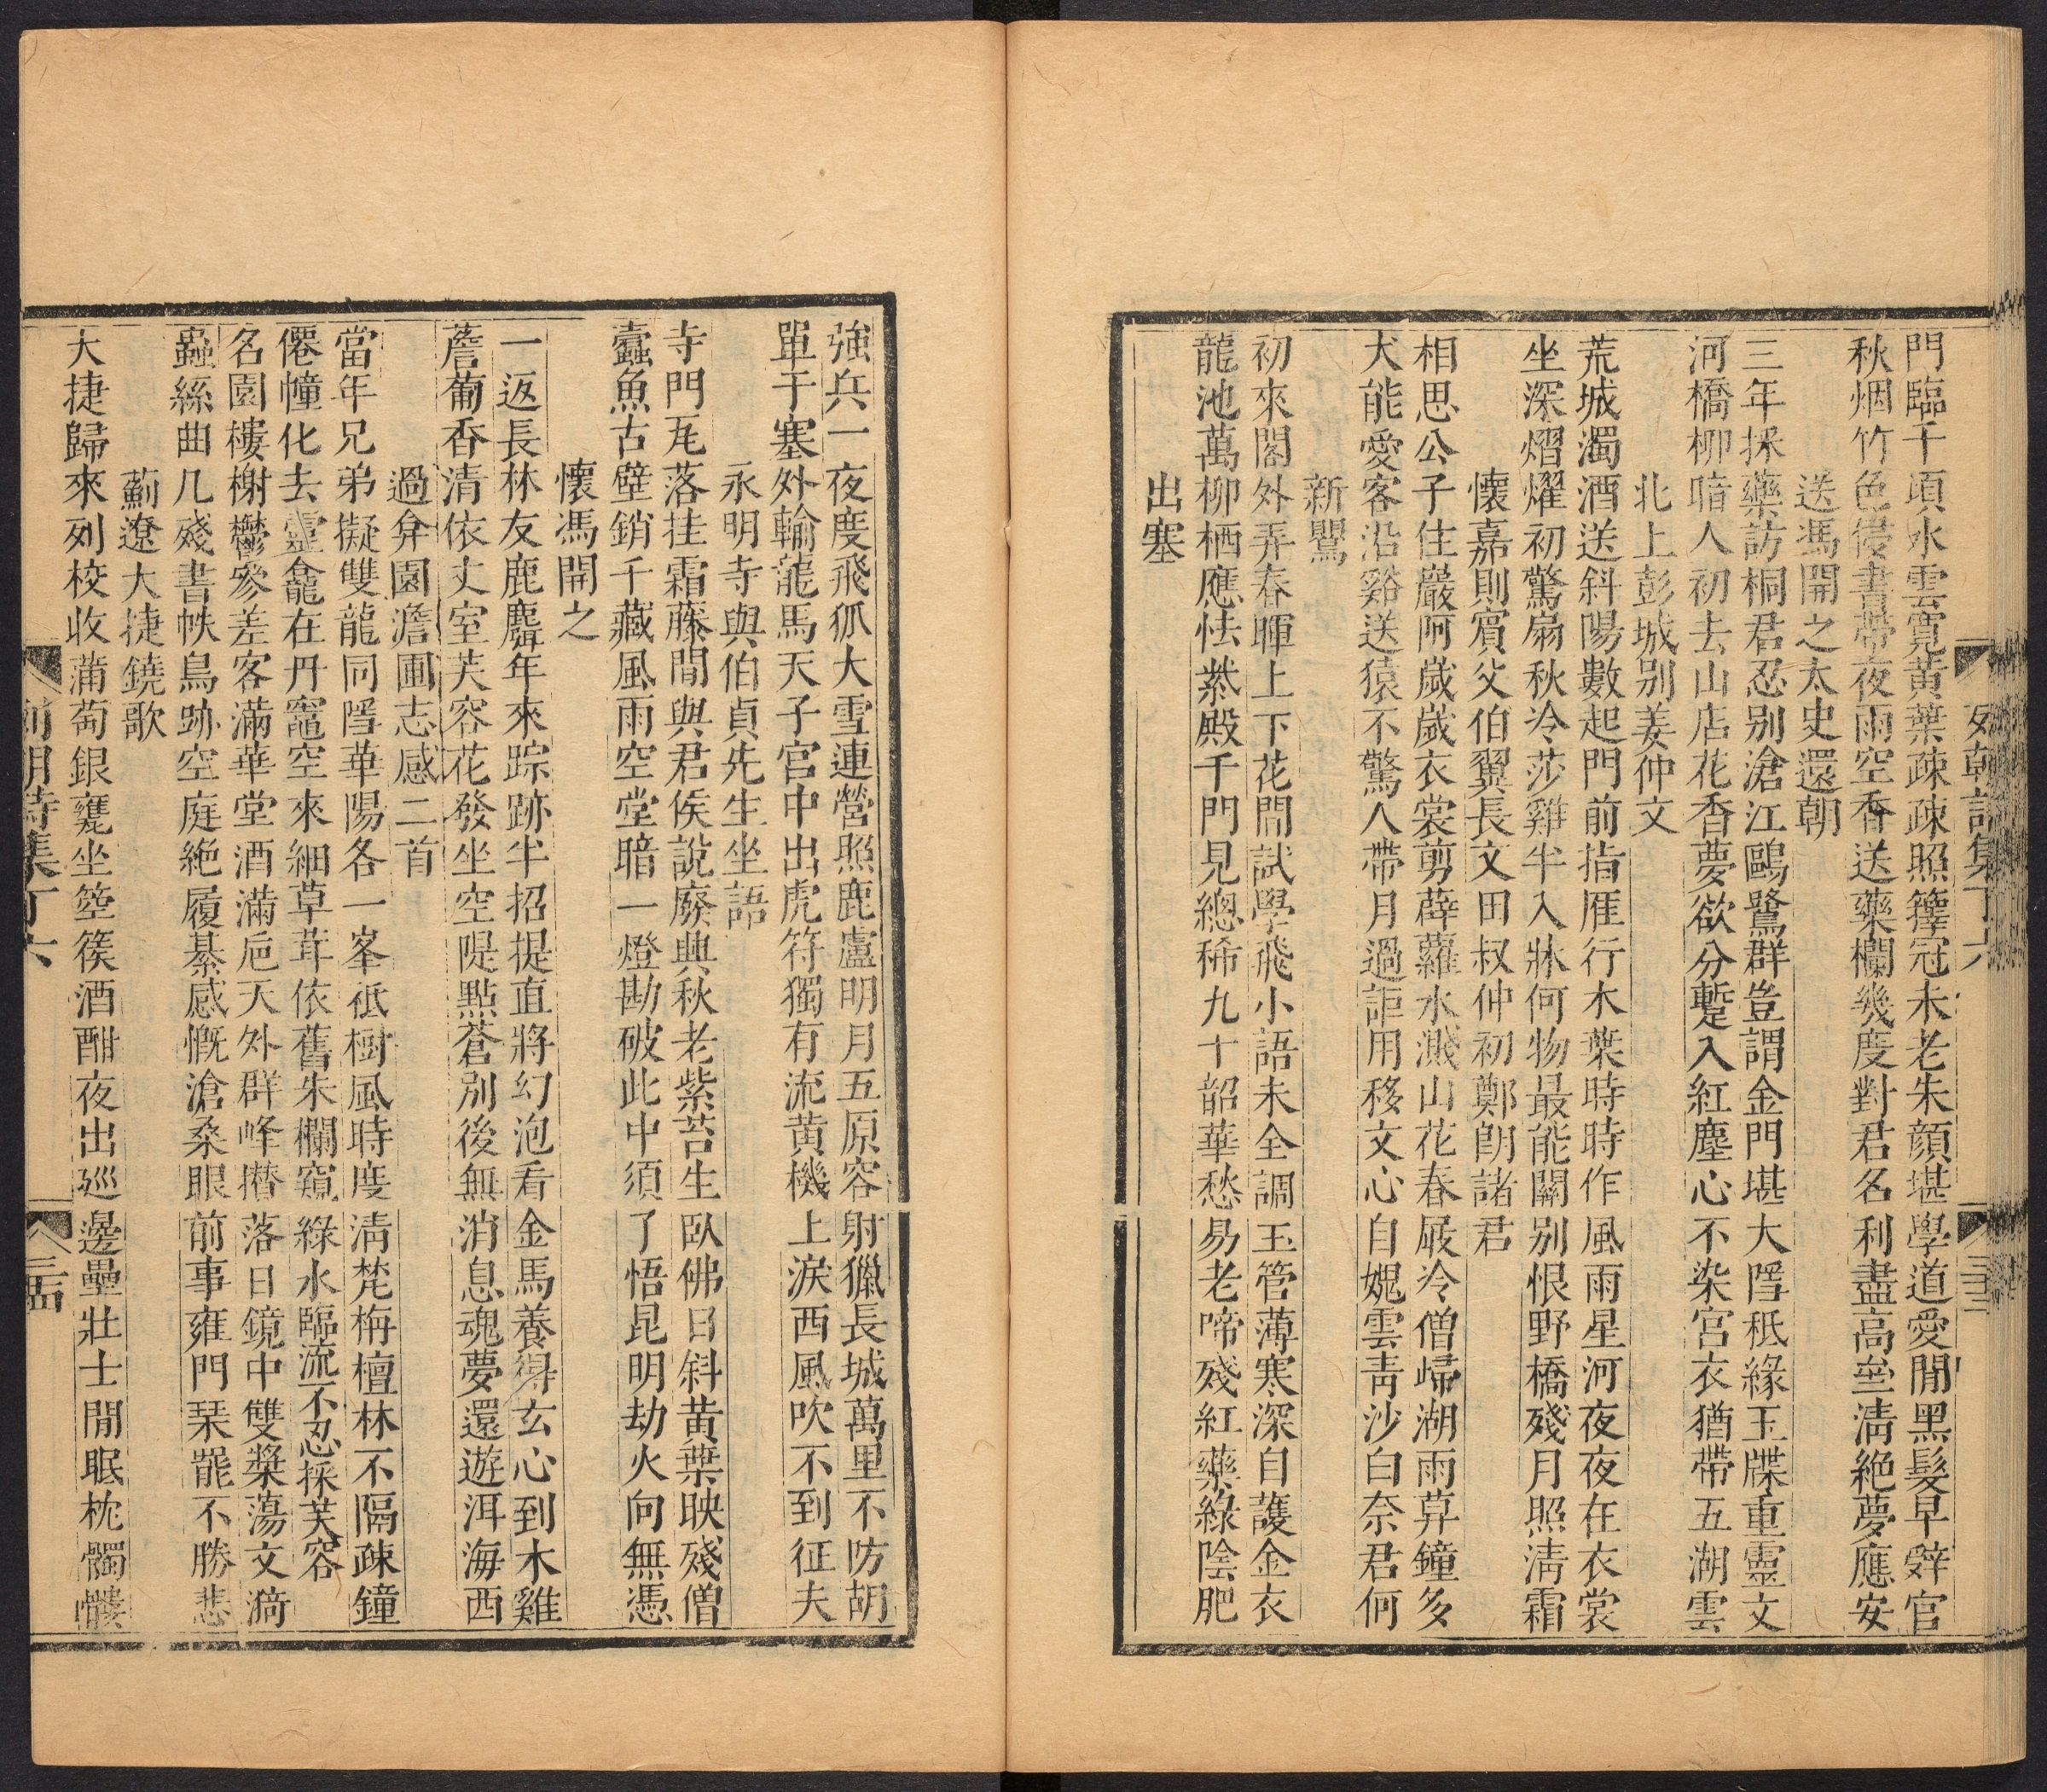 門臨千頃水雲寬黃葉疎疎照籜冠未老朱顏堪學道愛閒黑髮早辤官
秋烟竹色侵書帶夜雨空香送藥欄幾度對君名利盡高坐淸絶夢應安
送馮開之太史還朝
三年採藥訪桐君忍别滄江鷗鷺群豈謂金門堪大隱秪緣玉牒重靈文
河橋柳暗人初去山店花香夢欲分蹔入紅塵心不染宮衣猶帶五湖雲
北上彭城别姜仲文
荒城濁酒送斜陽數起門前指雁行木葉時時作風雨星河夜夜在衣裳
坐深熠燿初驚扇秋冷莎雞半入牀何物最能關别恨野橋殘月照淸霜
懷嘉則賓父伯翼長文田叔仲初鄭朗諸君
相思公子住巖阿歲歲衣裳剪薜蘿水濺山花春屐冷僧歸湖雨草鐘多
犬能愛客沿谿送猿不驚人帶月過詎用移文心自媿雲靑沙白奈君何
新鸎
初來閣外弄春暉上下花間試學飛小語未全調玉管薄寒深自護金衣
龍池萬柳栖應怯紫殿千門見總稀九十韶華愁易老啼殘紅藥綠陰肥
出塞
列朝詩集丁六
三
強兵一夜度飛狐大雪連營照鹿盧明月五原容射獵長城萬里不防胡
單于塞外輸龍馬天子宮中出虎符獨有流黃機上淚西風吹不到征夫
永明寺與伯貞先生坐語
寺門瓦落挂霜藤閒與君侯說廢興秋老紫苔生臥佛日斜黃葉映殘僧
蠹魚古壁銷千藏風雨空堂暗一燈勘破此中須了悟昆明劫火向無憑
懷馮開之
一返長林友鹿麛年來踪跡半招提直將幻泡看金馬養得玄心到木雞
薝蔔香清依丈室芙容花發坐空隄點蒼別後無消息魂夢還遊洱海西
過弇園澹圃志感二首
當年兄弟擬雙龍同隱華陽各一峯祇樹風時度淸梵梅檀林不隔疎鐘
僊幢化去靈龕在丹竈空來細草茸依舊朱欄窺綠水臨流不忍採芙容
名園樓榭鬱參差客滿華堂酒滿巵天外群峰攢落日鏡中雙槳蕩文漪
蟲絲曲几殘書帙鳥跡空庭絶履綦感慨滄桑眼前事雍門琹罷不勝悲
薊遼大捷鐃歌
大捷歸來列校收蒲萄銀甕坐箜篌酒酣夜出巡邊壘壯士閒眠枕髑髏
列朝詩集丁六
三四